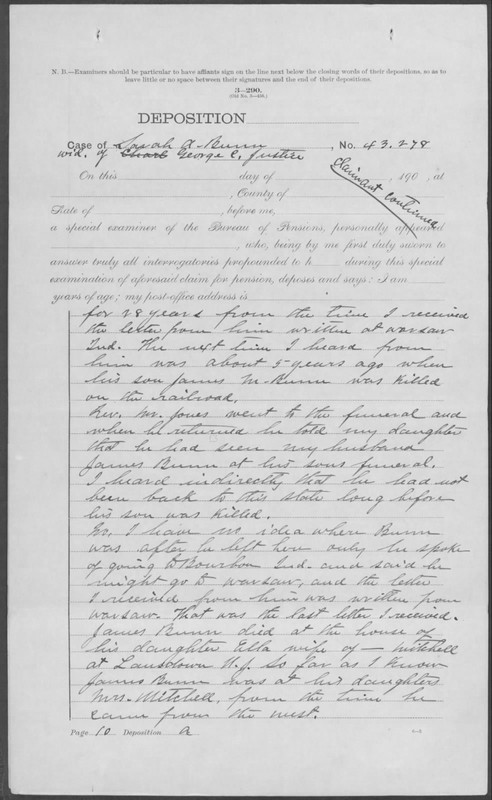 N. B.—Examiners should be particular to have affiants sign on the line next below the closing words of their depositions, so as to
leave little or no space between their signatures and the end of the depositions.
3—290.
(Old No. 3—466.)
DEPOSITION
Case of Sarah A. Bunn, No. 43.278
wid. of Charl George C. Justice
Claimant continued
On this day of , 190 , at
, County of
State of , before me,
a special examiner of the Bureau of Pensions, personally appeared
, who, being by me first duly sworn to
answer truly all interrogatories propounded to h during this special
examination of aforesaid claim for pension, deposes and says: I am
years of age; my post-office address is
for 28 years from the time I received
the letter from him written at Warsaw
Ind. The next time I heard from
him was about 5 years ago when
his son James M. Bunn was killed
on the railroad.
Rev. Mr. Jones went to the funeral and
when he returned he told my daughter
that he had seen my husband
James Bunn at his sons funeral.
I heard indirectly that he had not
been back to this state long before
his son was killed.
No, I have no idea where Bunn
was after he left here only he spoke
of going to Bourbon Ind. and said he
might go to Warsaw, and the letter
I received from him was written from
Warsaw. That was the last letter I received.
James Bunn died at the house of
his daughter Ella wife of — Mitchell
at Lansdown N.J. So far as I know
James Bunn was at his daughters
Mrs. Mitchell, from the time he
came from the west.
Page 10 Deposition A